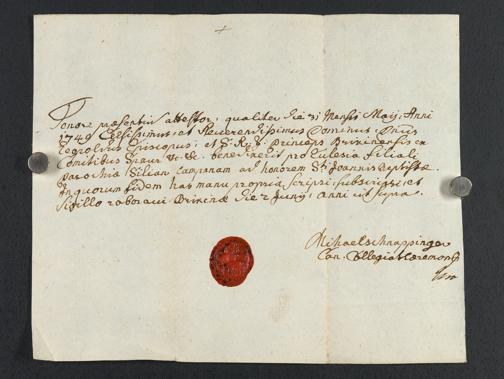 Tenore præsentiu attestor, qualiter Die 31 Mensis Maij, Anni
1749 Celsissimus, et Reverendissimus Dominus, Dnus
Leopoldus Episcopus, et S. R. I. Princeps Brixinensis ex
Comitibus Spaur &c. &c. benedixerit pro Ecclesia filiali
parochiæ Silian Campanam ad honorem S. Joannis Baptistæ.
In quorum fidem has manu propria scripsi, subscripsi, et
Sigillo roboravi. Brixinæ Die 2 Junij, anni ut supra.
Michael Schnappinger
Can. Collegiat